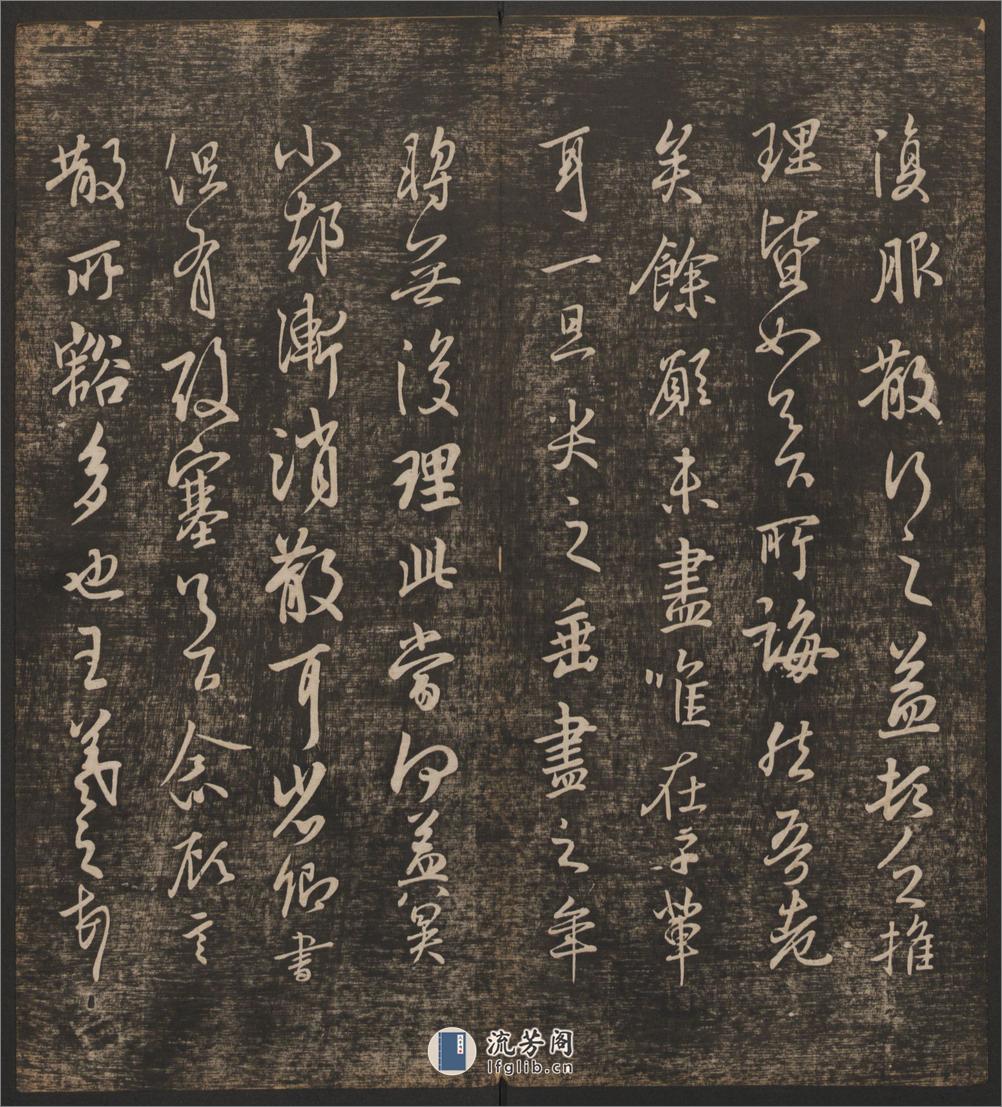 復服散行之益頓乏推
理皆如足下所誨然吾老
矣餘願未盡唯在子輩
耳一旦哭之垂盡之年
將無復理此當何益冀
小却漸消散耳省卿書
但有酸塞足下念故言
散所豁多也王羲之頓
流芳阁
lfglib.cn